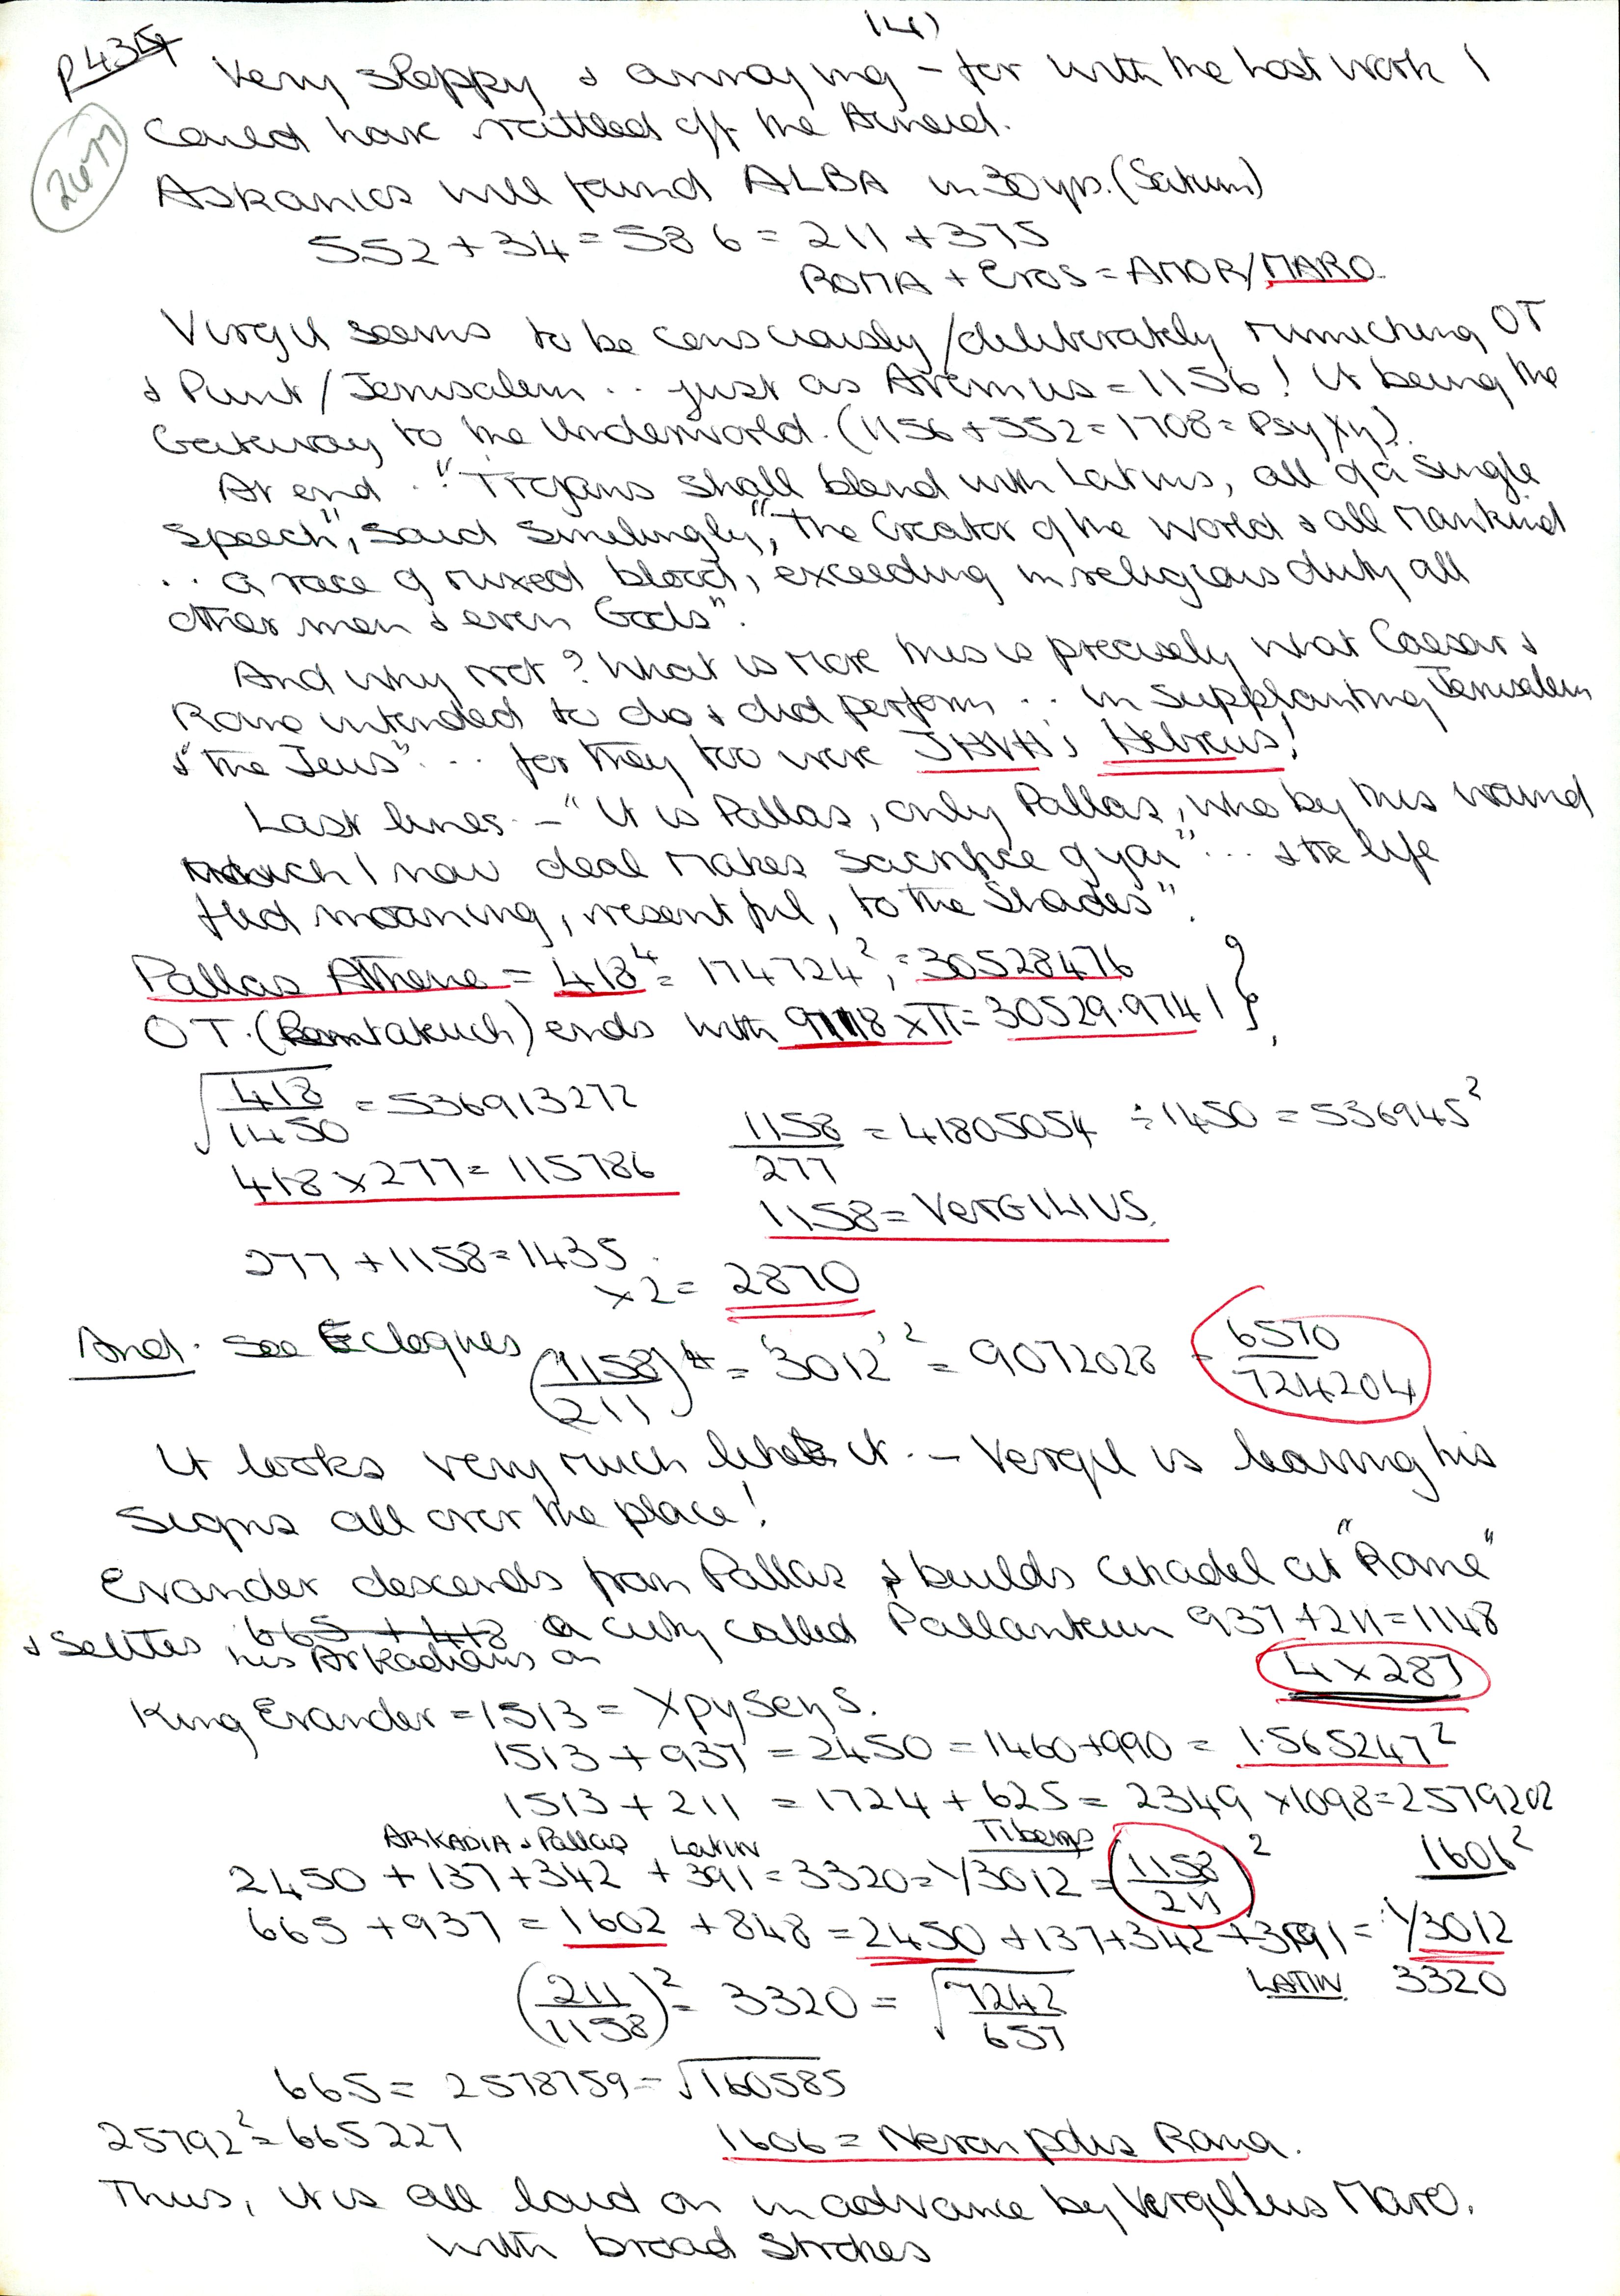 (4)
P434
2477
Very sloppy & annoying - for with the lost work I
could have rattled off the Aeneid.
Askanios will found ALBA in 30 yrs. (Saturn)
552 + 34 = 586 = 211 + 375
ROMA + Eros = AMOR/MARO.
Virgil seems to be consciously/deliberately mimicking OT
& Punt/Jerusalem .. just as Avernus = 1156! it being the
Gateway to the Underworld. (1156 + 552 = 1708 = Psyxy).
At end . "Trojans shall blend with Latins, all of a single
speech", said smilingly, "the Creator of the World & all Mankind
.. a race of mixed blood, exceeding in religious duty all
other men & even Gods".
And why not? What is more this is precisely what Caesar &
Rome intended to do & did perform .. in supplanting Jerusalem
& "the Jews" ... for they too were JHVH's Hebrews!
Last lines - "It is Pallas, only Pallas, who by this wound
which I now deal makes sacrifice of you" ... & the life
fled moaning, resentful, to the Shades".
Pallas Athene = 418⁴ = 174724², = 30528476
OT. (Pentateuch) ends with 9718 x π = 30529.9741
√418/1450 = 536913272
1158/277 = 41805054 ÷ 1450 = 536945²
418 x 277 = 115786
1158 = VerGILIUS.
277 + 1158 = 1435.
x 2 = 2870
And. See Eclogues (1158/211)⁴ = '3012'² = 9072028 = 6570/724204
It looks very much like it. - Vergil is leaving his
signs all over the place!
Evander descends from Pallas & builds citadel at "Rome"
& settles his Arkadians on a city called Pallanteum 937 + 211 = 1148
4 x 287
King Evander = 1513 = Xpyseys.
1513 + 937 = 2450 = 1460 + 990 = 1.565247²
1513 + 211 = 1724 + 625 = 2349 x 1098 = 2579202
ARKADIA & Pallas Latin Tiberys 1606²
2450 + 137 + 342 + 391 = 3320 = 1/3012 = (1158/211)²
665 + 937 = 1602 + 848 = 2450 + 137 + 342 + 391 = 1/3012
LATIN 3320
(211/1158)² = 3320 = √7242/657
665 = 2578759 = √160585
25792² = 665227
1606 = Neron polis Roma.
Thus, it is all laid on in advance by Vergilius Maro.
with broad strokes